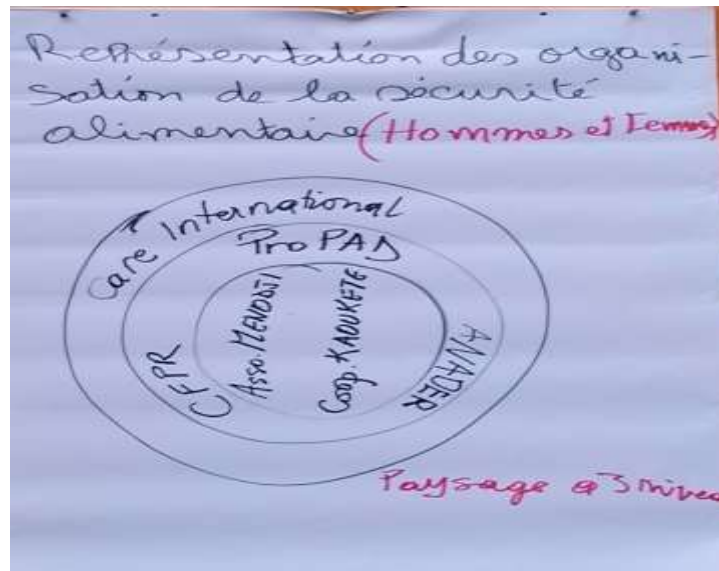 Représentation des organi-
sation de la sécurité
alimentaire (Hommes et Femmes)
Care International
ProPAD
CFPR
Asso. MENODJI
Coop. KAOUKETE
ANADER
Paysage a 3 nivea